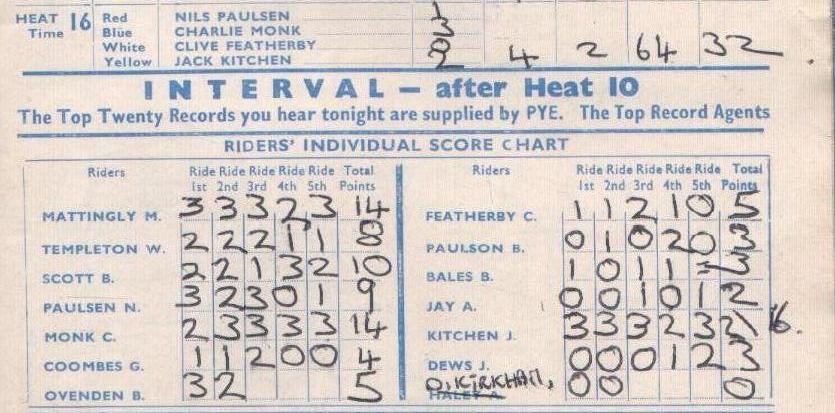 HEAT 16 Red NILS PAULSEN 1
Time Blue CHARLIE MONK 3
White CLIVE FEATHERBY 0
Yellow JACK KITCHEN 2 4 2 64 32
INTERVAL — after Heat 10
The Top Twenty Records you hear tonight are supplied by PYE. The Top Record Agents
RIDERS' INDIVIDUAL SCORE CHART
Riders Ride Ride Ride Ride Ride Total Riders Ride Ride Ride Ride Ride Total
1st 2nd 3rd 4th 5th Points 1st 2nd 3rd 4th 5th Points
MATTINGLY M. 3 3 3 2 3 14 FEATHERBY C. 1 1 2 1 0 5
TEMPLETON W. 2 2 2 1 1 8 PAULSON B. 0 1 0 2 0 3
SCOTT B. 2 2 1 3 2 10 BALES B. 1 0 1 1 - 3
PAULSEN N. 3 2 3 0 1 9 JAY A. 0 0 1 0 1 2
MONK C. 2 3 3 3 3 14 KITCHEN J. 3 3 3 2 3 2 16.
COOMBES G. 1 1 2 0 0 4 DEWS J. 0 0 0 1 2 3
OVENDEN B. 3 2 5 D. KIRKHAM, HALEY A. 0 0 0